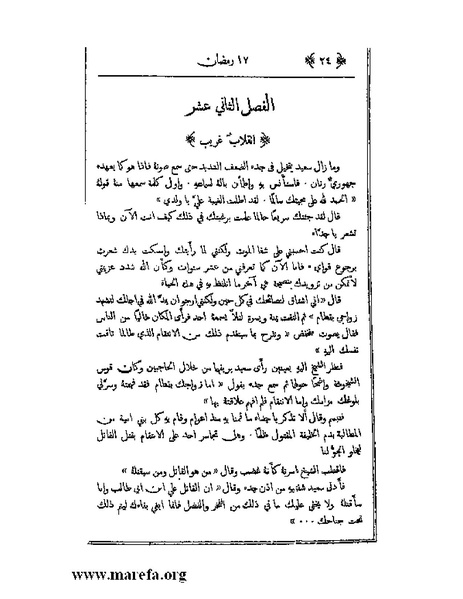 ﴿ ٢٤ ﴾ ١٧ رمضان
الفصل الثاني عشر
﴿ انقلاب غريب ﴾
وما زال سعيد يتخيل في جده الضعف الشديد حتى سمع صوته فاذا هو كما يعهده
جهوري رنان . فاستأنس به واطمأن باله لسماعه . واول كلمة سمعها منه قوله
« الحمد لله على مجيئك سالمًا . لقد اطلت الغيبة عليّ يا ولدي »
قال لقد جئتك سريعًا حالما علمت برغبتك في ذلك كيف انت الآن وبماذا
تشعر يا جداه
قال كنت احسبني على شفا الموت ولكنني لما رأيتك وامسكت بدك شعرت
برجوع قواي . فاما الآن كما تعرفني من عشر سنوات وكأن الله شدد عزيمتي
لأتمكن من تزويدك بنصيحة هي آخر ما اتلفظ به في هذه الحياة
قال « اني اشتاق لنصائحك في كل حين ولكنني ارجو ان يمد الله في اجالك لتشهد
زواجي بقطام » ثم التفت يمنة ويسرة لئلا يسمعه احد فرأى المكان خاليًا من الناس
فقال بصوت منخفض « وتفرح بما سيتقدم ذلك من الانتقام الذي طالما تاقت
نفسك اليه »
فنظر الشيخ اليه بعينين رأى سعيد بريقهما من خلال الحاجبين وكان قوس
الشيخوخة واضحًا حولها ثم سمع جده يقول « اما زواجك بقطام فقد فهمته وسرّني
بلوغك مرامك واما الانتقام فلم افهم علاقته بها »
فتبسم وقال ألا تذكر يا جداه ما قمنا به منذ اعوام وقام به كل بني امية من
المطالبة بدم الخليفة المقتول ظلمًا . وهل تجاسر احد على الانتقام بقتل القاتل
ليخلو الجوّ لنا
فاقتطب الشيخ اسرته كأنه غضب وقال « من هو القاتل ومن سيقتله »
فأدنى سعيد شفتيه من اذن جده وقال « ان القاتل علي ابن ابي طالب وانا
سأقتله ولا يخفى عليك ما في ذلك من الفخر والفضل فانما ابغي بقاءك ليتم ذلك
تحت جناحك ... »
www.marefa.org